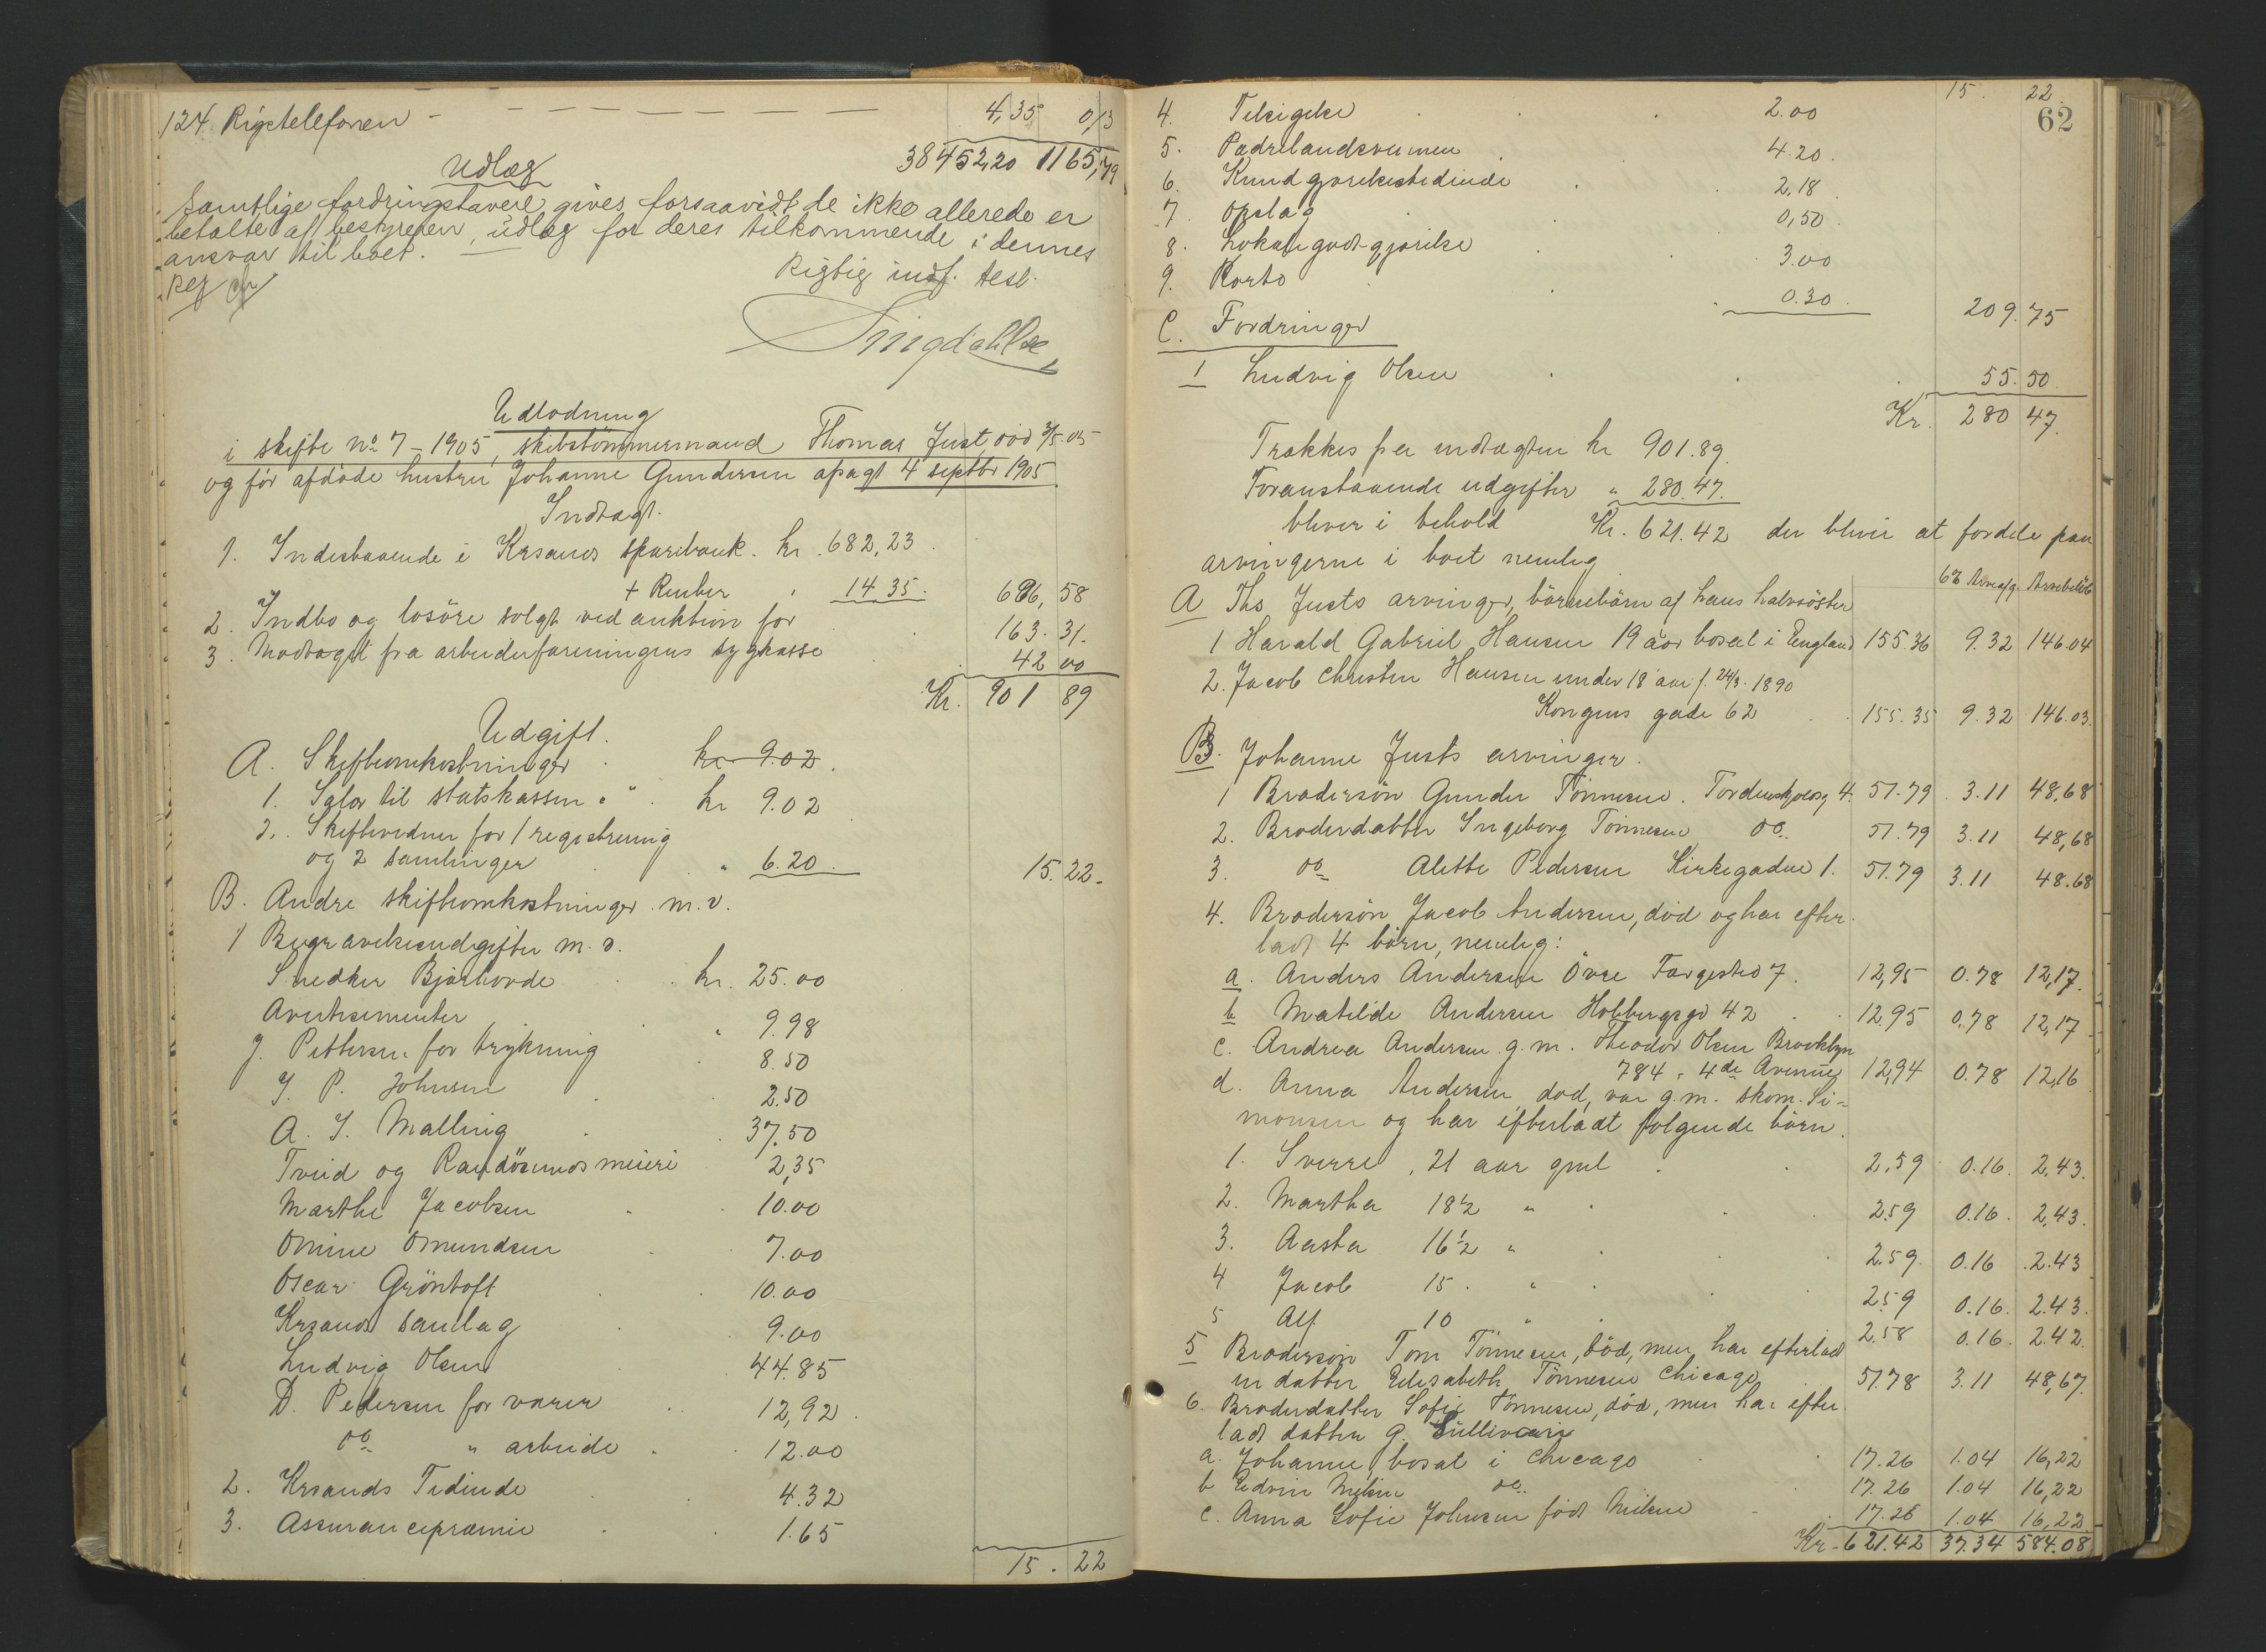 124 Rigstelefonen - 4,35 0,13
38452,20 1165,79
Udlæg
Samtlige fordringshavere gives, forsaavidt de ikke allerede er
betalte af bestyreren, udlæg for deres tilkommende i dennes
ansvar til boet.
Rigtig indf. tese.
Udlodning
i skifte no 7 - 1905, skibstömmermand Thomas Just död 3/5 05
og för afdöde hustru Johanne Gundersen afsagt 4 septbr 1905
Indtægt.
1. Indestaaende i Krsands sparebank. kr. 682,23
+ Renter 14.35. 696,58
2. Indbo og lösöre solgt ved auktion for 163.31.
3. Modtaget fra arbeiderforeningens sygkasse 42 00
Kr. 901 89
Udgift.
A. Skifteomkostninger kr 9.02.
1. Salær til statskassen " kr 9.02
2. Skiftevidner for 1 registrering
og 2 samlinger " 6.20. 15.22.
B. Andre skifteomkostninger m.v.
1 Begravelsesudgifter m.v.
Snedker Bjørhovde kr. 25.00
Avertisementer " 9.98
J. Pettersen for trykning 8.50
J. P. Johnsen 2.50
A. J. Malling 37.50
Tveid og Randösunds meieri 2,35
Marthe Jacobsen 10.00
Omine Omundsen 7.00
Oscar Gröntoft 10.00
Krsands Samlag 9.00
Ludvig Olsen 44.85
D. Pedersen for varer 12,92.
do " arbeide 12.00
2. Krsands Tidende 4.32
3. Assurancepræmie 1.65
15. 22
15. 22
62
4. Tilsigelse 2.00
5. Fædrelandsvennen 4.20.
6. Kundgjørelsestidende 2.18
7. Opslag 0,50.
8. Lokalgodtgjørelse 3.00
9. Porto 0.30. 209.75
C. Fordringer
1 Ludvig Olsen 55.50
Kr. 280 47.
Trækkes fra indtægten kr 901.89.
Foranstaaende udgifter " 280.47.
bliver i behold Kr. 621.42 der bliver at fordele paa
arvingerne i boet nemlig
6% Arveafg. Arvebelöb
A Ths Justs arvinger, börnebörn af hans halvsöster
1 Harald Gabriel Hansen 19 aar bosat i England 155.36 9.32 146.04
2. Jacob Christen Hansen under 18 aar f. 24/3. 1890
Kongens gade 62 155.35 9.32 146.03.
B. Johanne Justs arvinger.
1 Brodersön Gunder Tönnesen. Tordenskjoldsg 4. 51.79 3.11 48,68
2. Broderdatter Ingeborg Tönnesen do. 51.79 3.11 48,68
3. do Alette Pedersen Kirkegaden 1. 51.79 3.11 48.68
4. Brodersön Jacob Andersen, död og har efter-
ladt 4 börn, nemlig:
a. Anders Andersen Övre Torgested 7. 12,95 0.78 12,17.
b Matilde Andersen Holbergsgd 42 12.95 0.78 12,17
c. Andrea Andersen g.m. Theodor Olsen Brooklyn
784 - 4de Avenue 12,94 0.78 12,16
d. Anna Andersen död, var g.m. skom. Si-
monsen og har efterladt fölgende börn.
1. Sverre, 21 aar gml 2,59 0.16. 2,43.
2. Martha 18½ " 2.59 0.16. 2,43.
3. Aasta 16½ " 2.59. 0.16 2.43
4 Jacob 15. " 2.59 0.16. 2.43.
5 Alf 10 " 2.58 0.16. 2.42.
5 Brodersön Tom Tönnesen, död, men har efterladt
en datter Elisabeth Tönnesen Chicago 51.78 3.11 48,67.
6. Broderdatter Sofie Tönnesen, död, men har efter
ladt datter g. Sullivan
a. Johanne, bosat i Chicago 17.26 1.04 16,22
b Edvin Nilsen do. 17.26 1.04 16,22
c. Anna Sofie Johnsen född Nilsen 17.26 1.04 16,22
Kr. 621.42 37.34 584.08